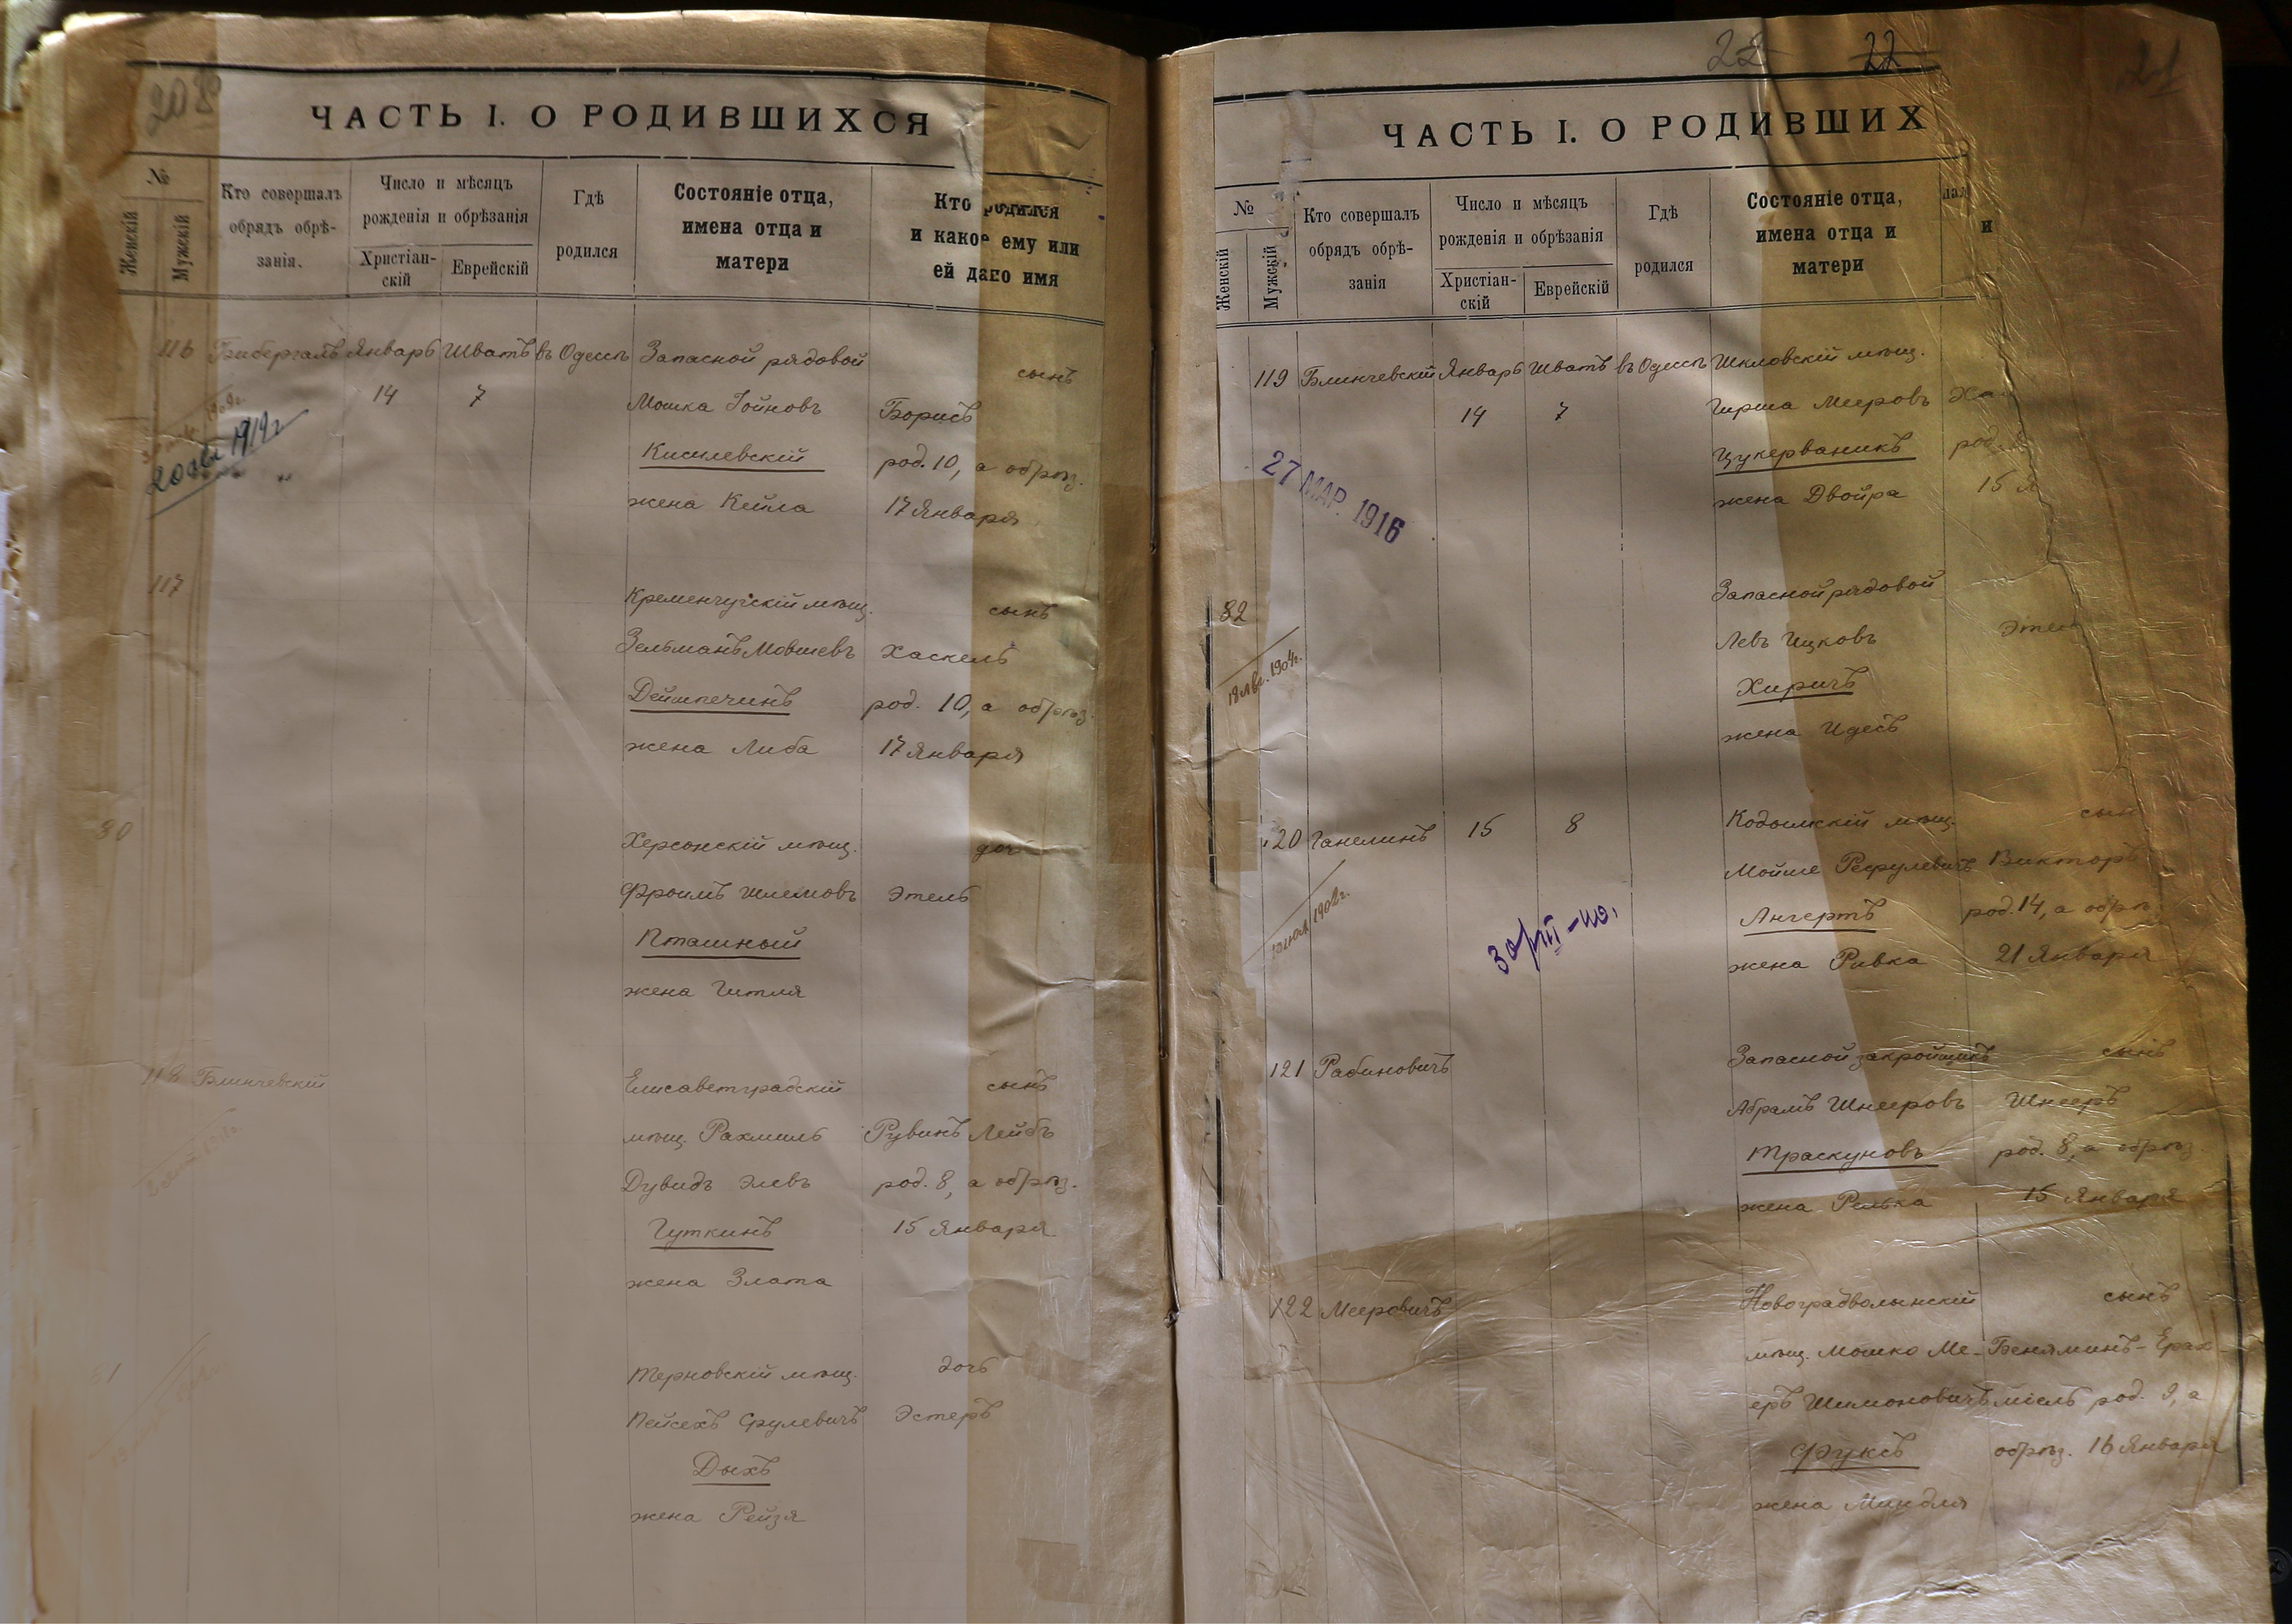 208
ЧАСТЬ I. О РОДИВШИХСЯ
№
Женскій
Мужскій
Кто совершалъ
обрядъ обрѣ-
занія.
Число и мѣсяцъ
рожденія и обрѣзанія
Христіан-
скій
Еврейскій
Гдѣ
родился
Состояніе отца,
имена отца и
матери
Кто родился
и какое ему или
ей дано имя
116 Бибергалъ Январь Шватъ въ Одессѣ Запасной рядовой сынъ
14 7 Мошка Іойновъ Борисъ
20 авг 1919 г
Кисилевскій род. 10, а обрѣз.
жена Кейла 17 Января
117 Кременчугскій мѣщ. сынъ
Зельманъ Мовшевъ Хаскель
Деймпечинъ род. 10, а обрѣз.
жена Либа 17 Января
80 Херсонскій мѣщ. дочь
Фроимъ Шлемовъ Этель
Пташный
жена Гитля
118 Блинчевскій Елисаветградскій сынъ
мѣщ. Рахмиль Рувинъ Лейбъ
Дувидъ Элевъ род. 8, а обрѣз.
Гуткинъ 15 Января
жена Злата
1 Терновскій мѣщ. дочь
Пейсехъ Срулевичъ Эстеръ
Дыхъ
жена Рейзя
22 22 21
ЧАСТЬ I. О РОДИВШИХ
№
Женскій
Мужскій
Кто совершалъ
обрядъ обрѣ-
занія
Число и мѣсяцъ
рожденія и обрѣзанія
Христіан-
скій
Еврейскій
Гдѣ
родился
Состояніе отца,
имена отца и
матери
и
119 Блинчевскій Январь Шватъ въ Одессѣ Шкловскій мѣщ.
14 7 Гирша Мееровъ Ха
27 МАР. 1916
Цукерваникъ род.
жена Двойра 15 Я
82 Запасной рядовой
Левъ Ицковъ Этель
18 Авг. 1904 г.
Хиричъ
жена Идесъ
120 Ганелинъ 15 8 Кодымскій мѣщ. сынъ
Мойше Рефулевичъ Викторъ
1902 г.
30/III-10,
Ангертъ род. 14, а обрѣз.
жена Ривка 21 Января
121 Рабиновичъ Запасной закройщикъ сынъ
Абрамъ Шнееровъ Шнееръ
Траскуновъ род. 8, а обрѣз.
жена Ривка 15 Января
122 Мееровичъ Новоградволынскій сынъ
мѣщ. Мошко Ме- Беняминъ-Ерах-
еръ Шимоновичъ міель род. 9, а
Фуксъ обрѣз. 16 Января
жена Миндля